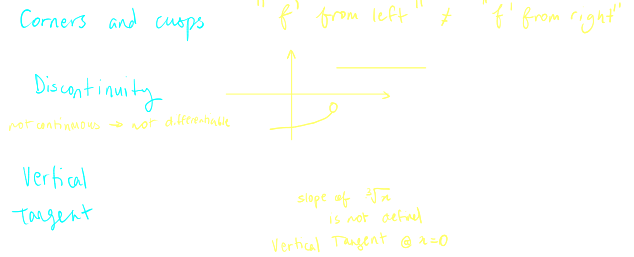 Corners and cusps " f' from left " ≠ " f' from right "
Discontinuity
not continuous → not differentiable
Vertical
Tangent
slope of ∛x
is not actual
Vertical Tangent @ x=0